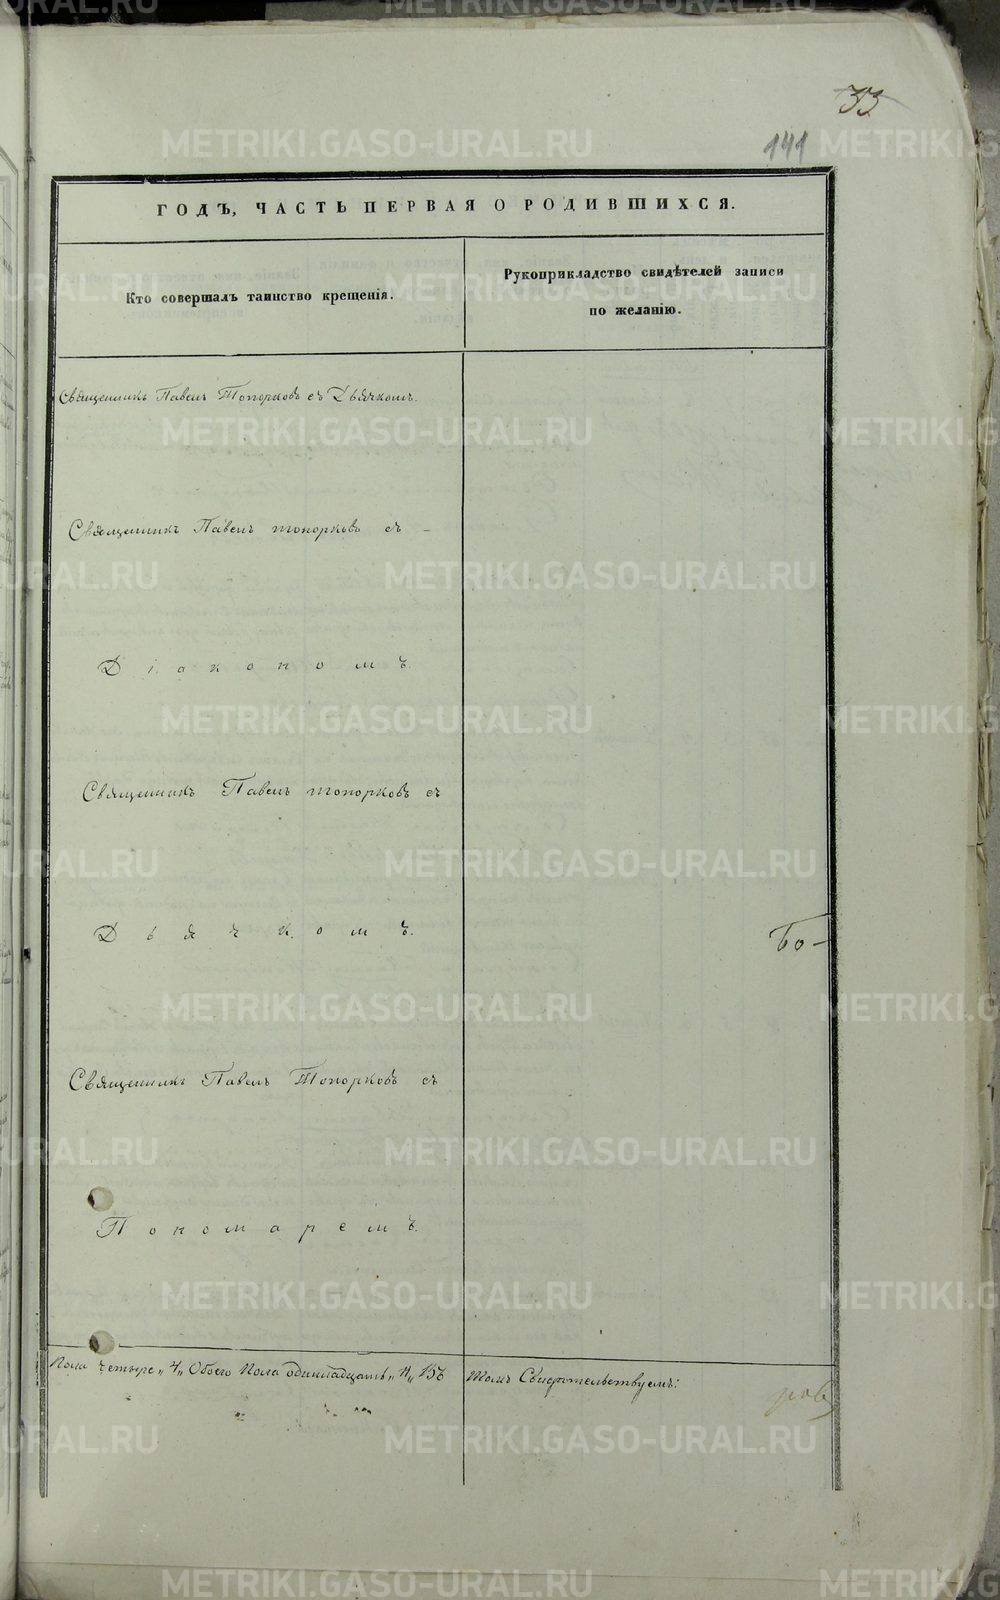 33
141
ГОДЪ, ЧАСТЬ ПЕРВАЯ О РОДИВШИХСЯ.
Кто совершалъ таинство крещенія.
Рукоприкладство свидѣтелей записи
по желанію.
Священникъ Павелъ Топорковъ съ Дьячкомъ.
Священникъ Павелъ Топорковъ съ –
Діакономъ.
Священникъ Павелъ Топорковъ съ
Дьячкомъ.
Бо-
Священникъ Павелъ Топорковъ съ
Пономаремъ.
Пола четыре „4„ Обоего Пола одинадцать „11„
свидѣтельствуемъ:
ровъ
METRIKI.GASO-URAL.RU